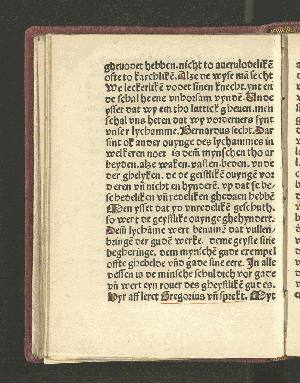 ghevodet hebben. nicht to averulodelikẽ
ofte to karchlikẽ. Alze de wyse mã secht
We leckerlikẽ vodet sinen knecht. ynt en
de schal he ene vnhorsam vynde. Unde
ysset dat wy em tho luttick gheuen. men
schal vns heten dat wy vorderuers synt
vnser lychamme. Bernardus secht. Dar
sint ok ander ouynge des lychammes in
welkeren noet is dem̃ mynschen tho ar
beyden. alze waken. vasten. beden. vnde
der ghelyken. de de geistlikẽ ouyngẽ vor
deren vñ nicht en hynderẽ. vp dat se be-
schedeliken vñ redeliken ghedaen hebbẽ
Men ysset dat yd vnredelikẽ geschuth.
so wert de geystlike ouynge ghehyndert.
Dem̃ lychãme wert benamẽ dat vullen-
bringẽ der gudẽ werke. deme geyste sine
begheringe. dem mynschẽ gade exempel
offte ghebelde vnd gade sine eere. In alle
dessen is de minsche schuldich vor gade
vñ wert eyn rouer des gheystlikẽ gudes.
Hyr aff leret Gregorius vñ sprekt. Myt